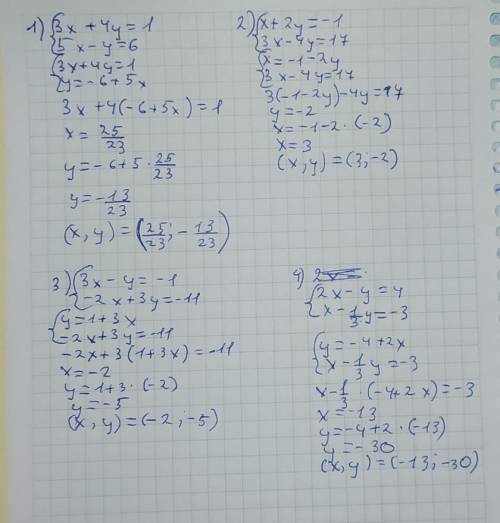 1) {3x+4y=1
{5x-y=6
{3x+4y=1
{y=-6+5x
3x+4(-6+5x)=1
x=25/23
y=-6+5·25/23
y=-13/23
(x,y)=(25/23;-13/23)
2) {x+2y=-1
{3x-4y=17
{x=-1-2y
{3x-4y=17
3(-1-2y)-4y=17
y=-2
x=-1-2·(-2)
x=3
(x,y)=(3;-2)
3) {3x-y=-1
{-2x+3y=-11
{y=1+3x
{-2x+3y=-11
-2x+3(1+3x)=-11
x=-2
y=1+3·(-2)
y=-5
(x,y)=(-2;-5)
4)
{2x-y=4
{x-1/3y=-3
{y=-4+2x
{x-1/3y=-3
x-1/3·(-4+2x)=-3
x=-13
y=-4+2·(-13)
y=-30
(x,y)=(-13;-30)